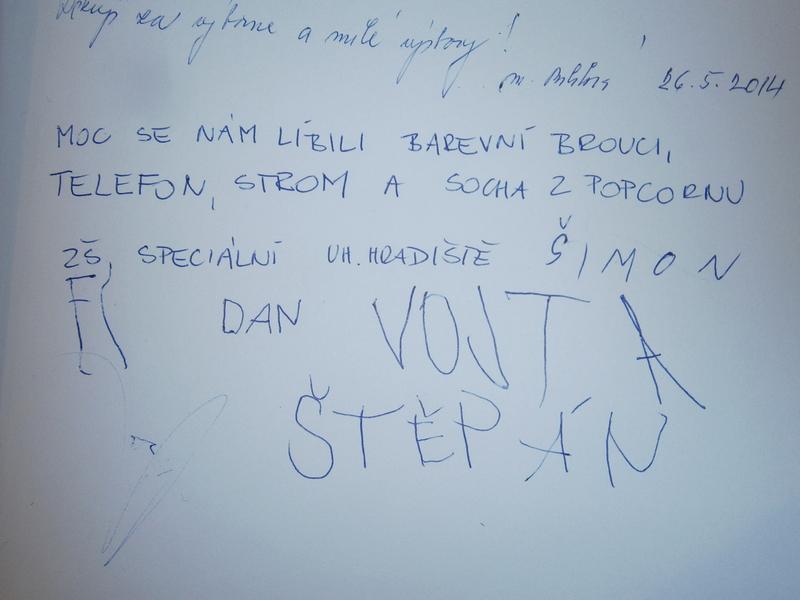 za výborné a milé výstavy!
26.5.2014
MOC SE NÁM LÍBILI BAREVNÍ BROUCI,
TELEFON, STROM A SOCHA Z POPCORNU
ZŠ, SPECIÁLNÍ UH. HRADIŠTĚ ŠIMON
DAN VOJTA
ŠTĚPÁN